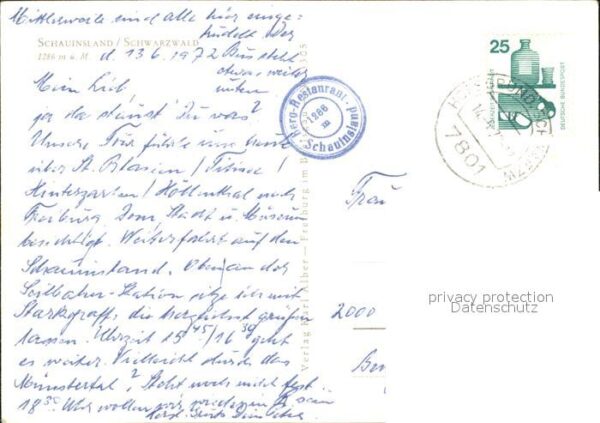 Mittlerweile sind alle hier einge=
trudelt. Der
SCHAUINSLAND / SCHWARZWALD
1286 m ü. M.
d. 13.6.1972 Bus steht
etwas weiter
unten
Mein Lieb
ja da staunst Du was?
Unsere Tour führte uns heute
über St. Blasien / Titisee /
Hinterzarten / Höllental nach
Freiburg. Dom, Stadt u. Museum
besichtigt. Weiterfahrt auf den
Schauinsland. Oben an der
Seilbahn-Station sitze ich mit
die herzlichst grüßen
lassen. Uhrzeit 15 45/16 30 geht
es weiter. Vielleicht durch das
Münstertal? Steht noch nicht fest.
18 30 Uhr wollen wir wieder in B. sein
Verlag Karl Alber — Freiburg im
Berg-Restaurant
1286
m
Schauinsland
25
DEUTSCHE BUNDESPOST
7801
Frau
2000
privacy protection
Datenschutz